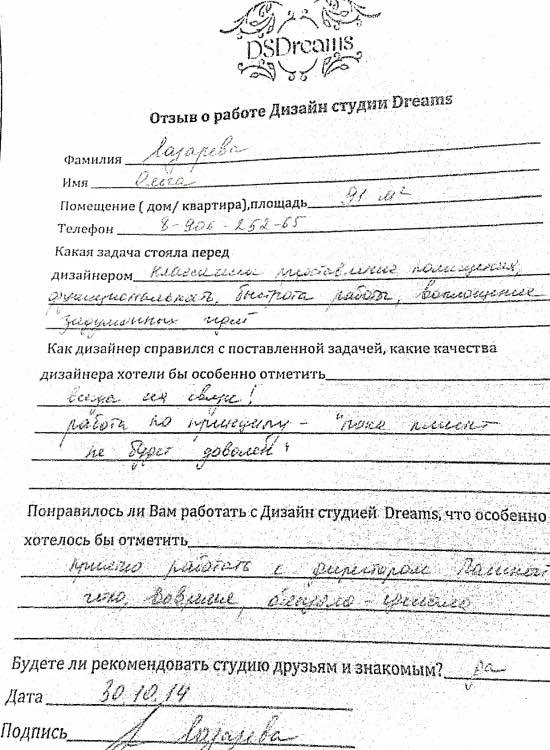 DSDreams
Отзыв о работе Дизайн студии Dreams
Фамилия Лазарева
Имя Ольга
Помещение ( дом/ квартира),площадь 91 м²
Телефон 8-906-252-65
Какая задача стояла перед
дизайнером классически помещения,
функциональность, быстрота работы, воплощение
задуманных идей
Как дизайнер справился с поставленной задачей, какие качества
дизайнера хотели бы особенно отметить
всегда на связи!
работа по принципу - "пока клиент
не будет доволен"
Понравилось ли Вам работать с Дизайн студией Dreams, что особенно
хотелось бы отметить
приятно работать с директором Полиной
вовремя, обещала -
Будете ли рекомендовать студию друзьям и знакомым? да
Дата 30.10.14
Подпись Лазарева